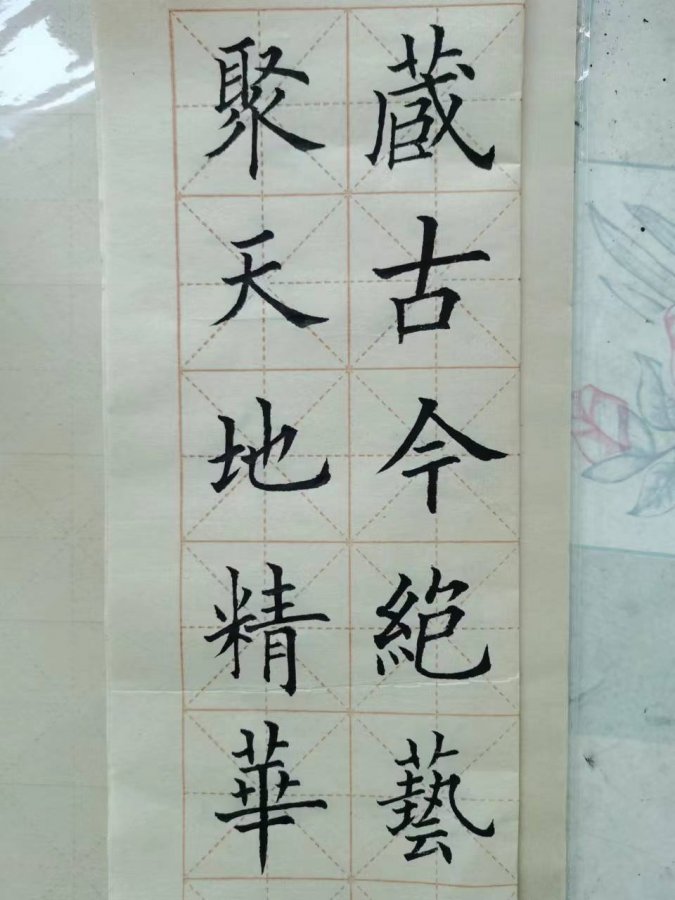 藏古今絕藝
聚天地精華